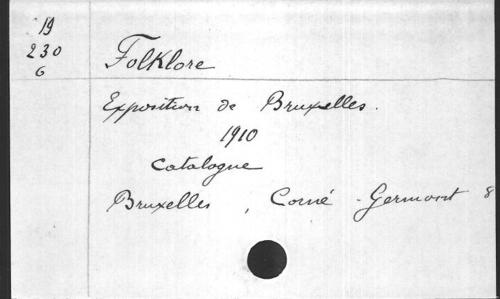 19
230
6
Folklore
Exposition de Bruxelles.
1910
Catalogue
Bruxelles, Corné-Germont 8